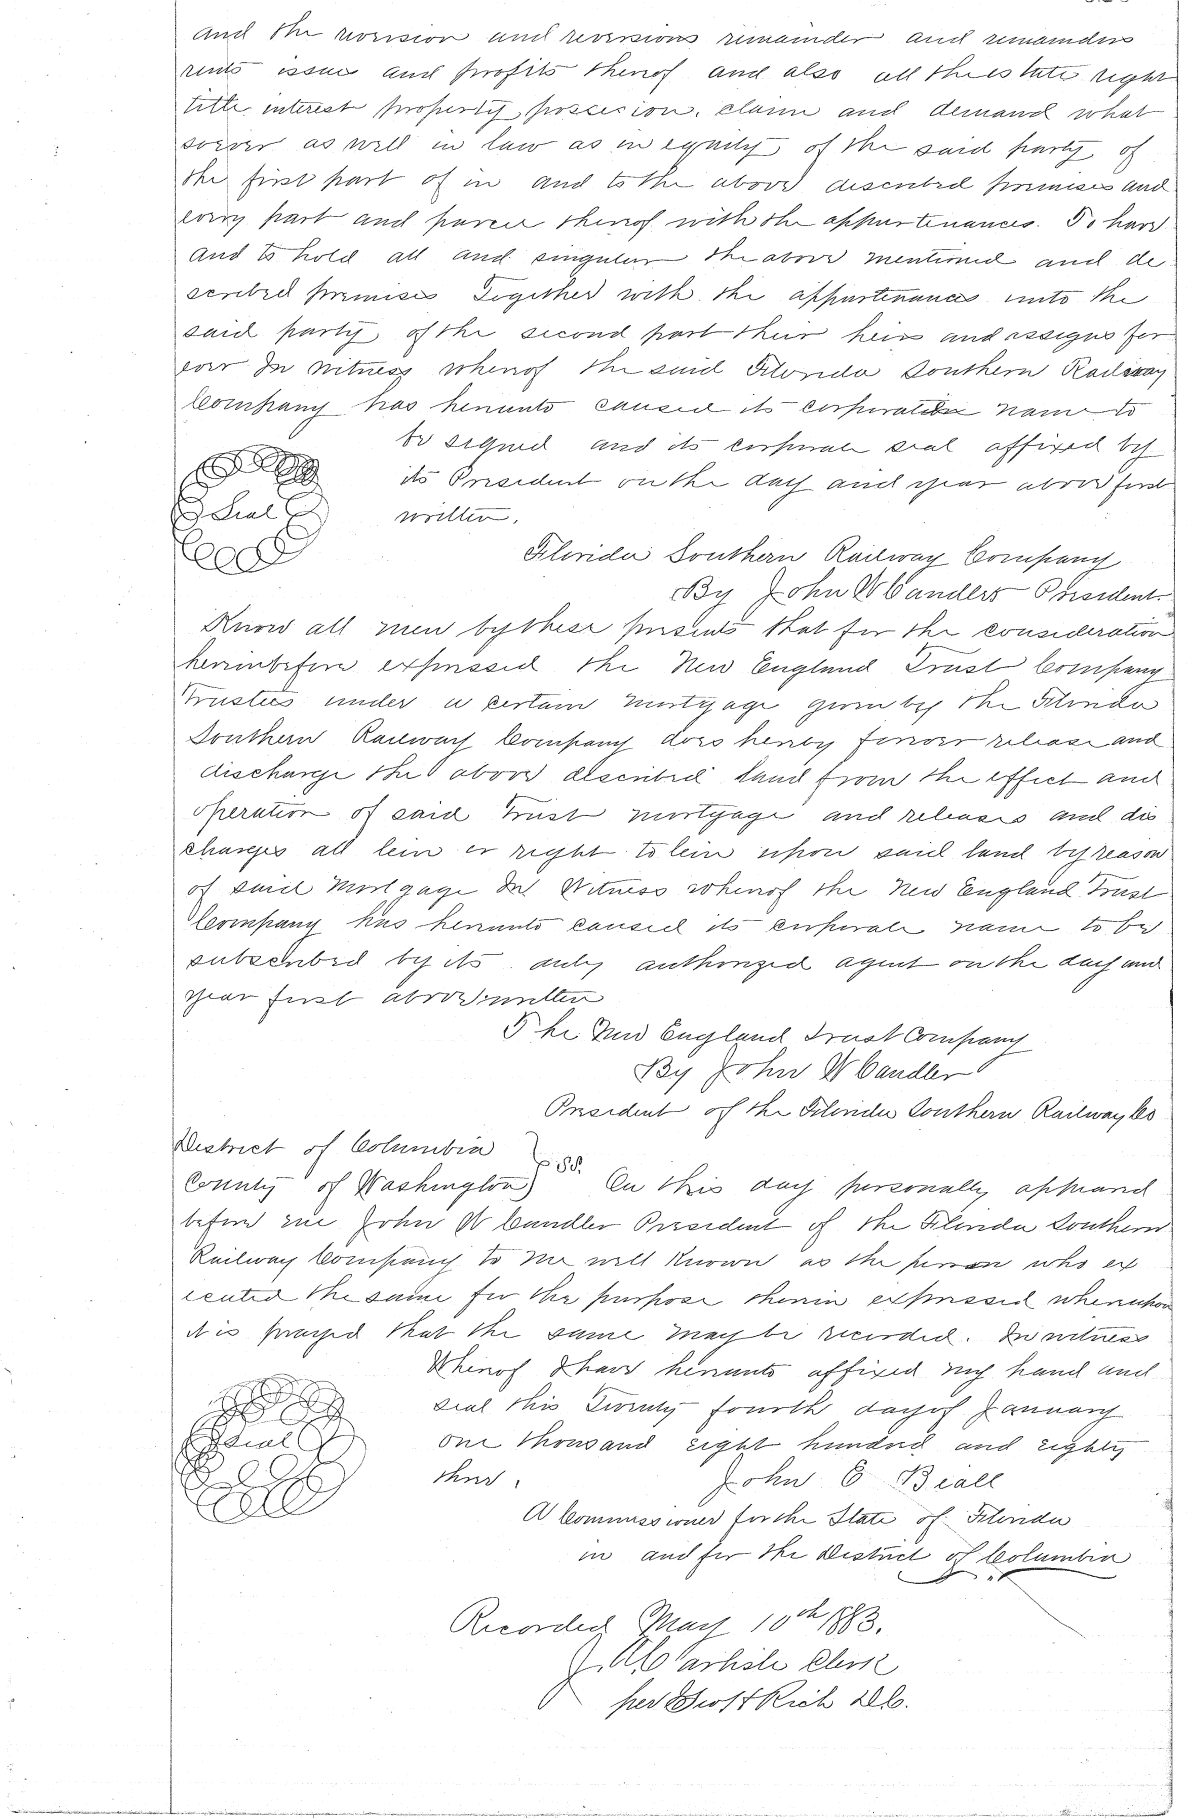 and the reversion and reversions remainder and remainders
rents issues and profits thereof and also all the estate right
title interest property possession, claim and demand what
soever as well in law as in equity of the said party of
the first part of in and to the above described premises and
every part and parcel thereof with the appurtenances. To have
and to hold all and singular the above mentioned and de
scribed premises Together with the appurtenances unto the
said party of the second part their heirs and assigns for
ever In witness whereof the said Florida Southern Railway
Company has hereunto caused its corporate name to
be signed and its corporate seal affixed by
its President on the day and year above first
Seal written.
Florida Southern Railway Company
By John W Candler President.
Know all men by these presents that for the consideration
hereinbefore expressed the New England Trust Company
Trustees under a certain mortgage given by the Florida
Southern Railway Company does hereby forever release and
discharge the above described land from the effect and
operation of said Trust mortgage and releases and dis
charges all lein or right to lein upon said land by reason
of said Mortgage In Witness whereof the New England Trust
Company has hereunto caused its corporate name to be
subscribed by its duly authorized agent on the day and
year first above written
The New England Trust Company
By John W Candler
President of the Florida Southern Railway Co
District of Columbia
County of Washington } SS. On this day personally appeared
before me John W Candler President of the Florida Southern
Railway Company to me well known as the person who ex
ecuted the same for the purpose therein expressed whereupon
it is prayed that the same may be recorded. In witness
Whereof I have hereunto affixed my hand and
seal this Twenty fourth day of January
Seal one thousand eight hundred and eighty
three. John E Beall
A Commissioner for the State of Florida
in and for the District of Columbia
Recorded May 10th 1883.
J. A. Carlisle Clerk
per Rich D.C.